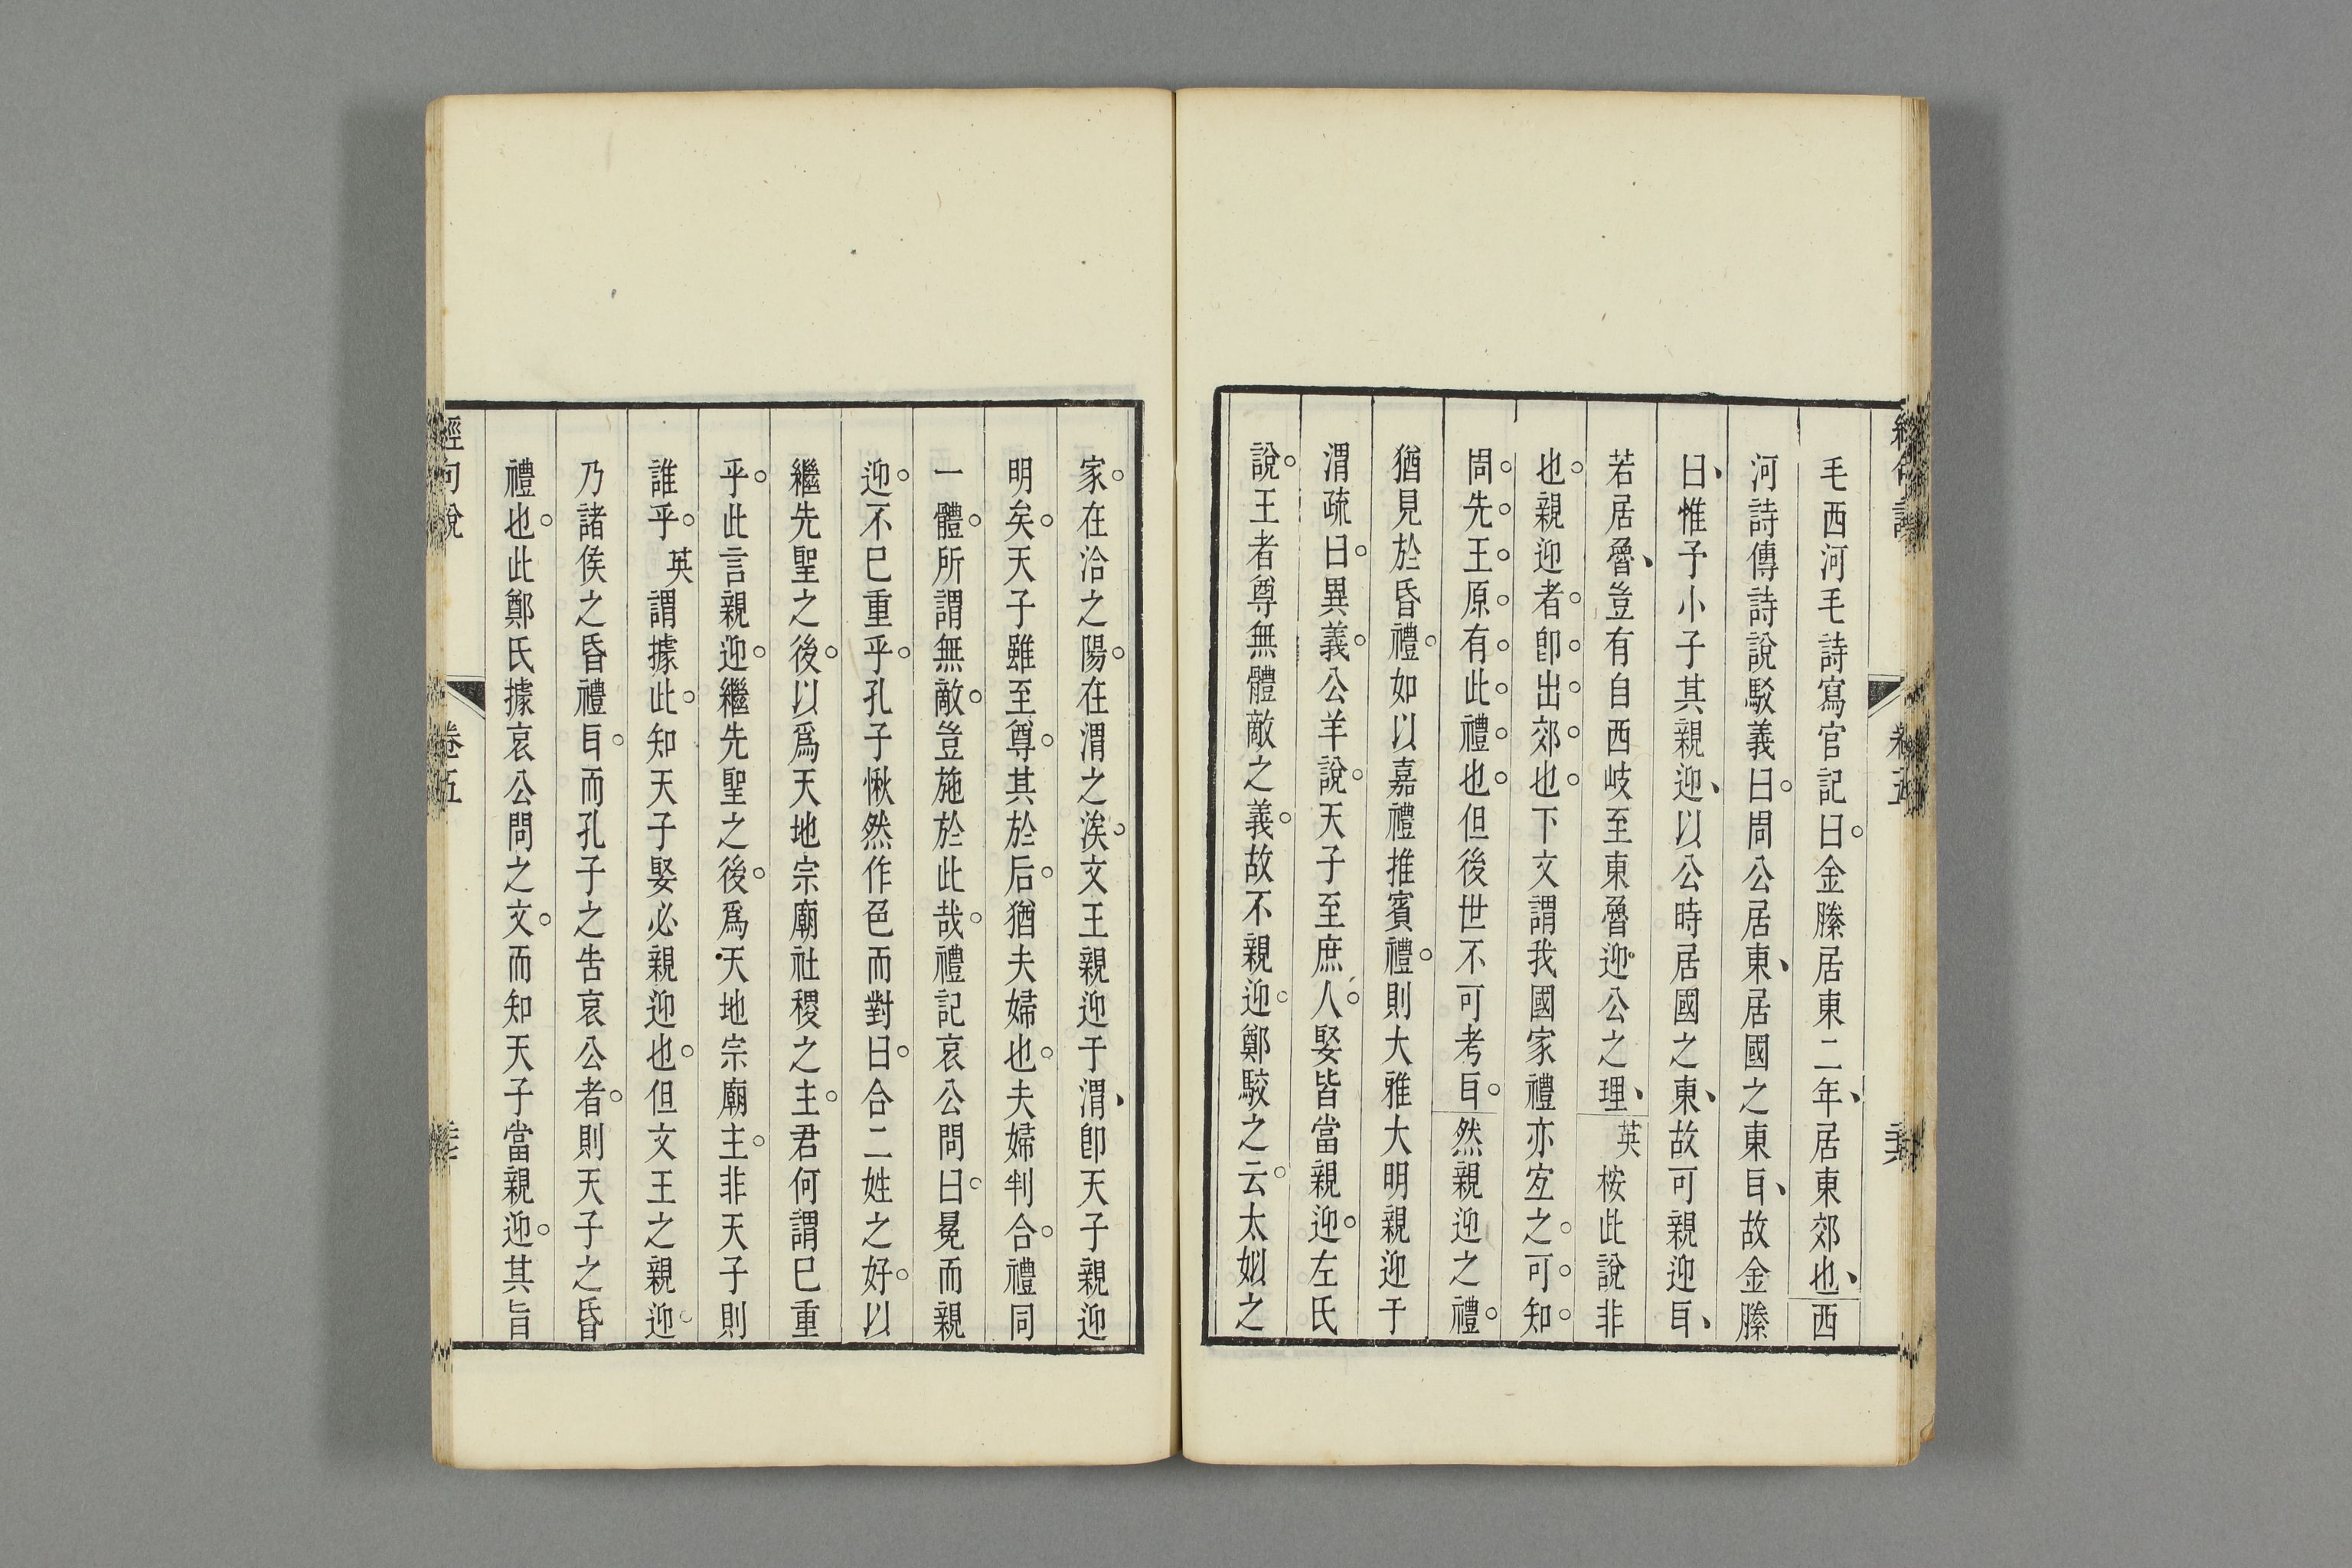 毛西河毛詩寫官記曰。金縢居東二年、居東郊也、西
河詩傳詩說駁義曰。周公居東、居國之東𦔮、故金縢
曰、惟予小子其親迎、以公時居國之東、故可親迎𦔮、
若居魯、豈有自西岐至東魯迎公之理、英桉此說非
也。親迎者。卽。出。郊。也。下文謂我國家禮亦宐之。可。知。
周。先。王。原。有。此。禮。也。但後世不可考𦔮。然親迎之禮。
猶見於昏禮。如以嘉禮推賓禮。則大雅大明親迎于
渭疏曰。異義。公羊說。天子至庶人。娶皆當親迎。左氏
說。王者尊無體敵之義。故不親迎。鄭駮之云。太姒之
家。在洽之陽。在渭之涘。文王親迎于渭、卽天子親迎
明矣。天子雖至尊。其於后。猶夫婦也。夫婦判合。禮同
一體。所謂無敵。豈施於此哉。禮記哀公問曰。冕而親
迎。不巳重乎。孔子愀然作色而對曰。合二姓之好。以
繼先聖之後。以爲天地宗廟社稷之主。君何謂巳重
乎。此言親迎。繼先聖之後。爲天地宗廟主。非天子則
誰乎。英謂據此。知天子娶必親迎也。但文王之親迎。
乃諸侯之昏禮𦔮。而孔子之告哀公者。則天子之昏
禮也。此鄭氏據哀公問之文。而知天子當親迎。其旨
經句說 卷五